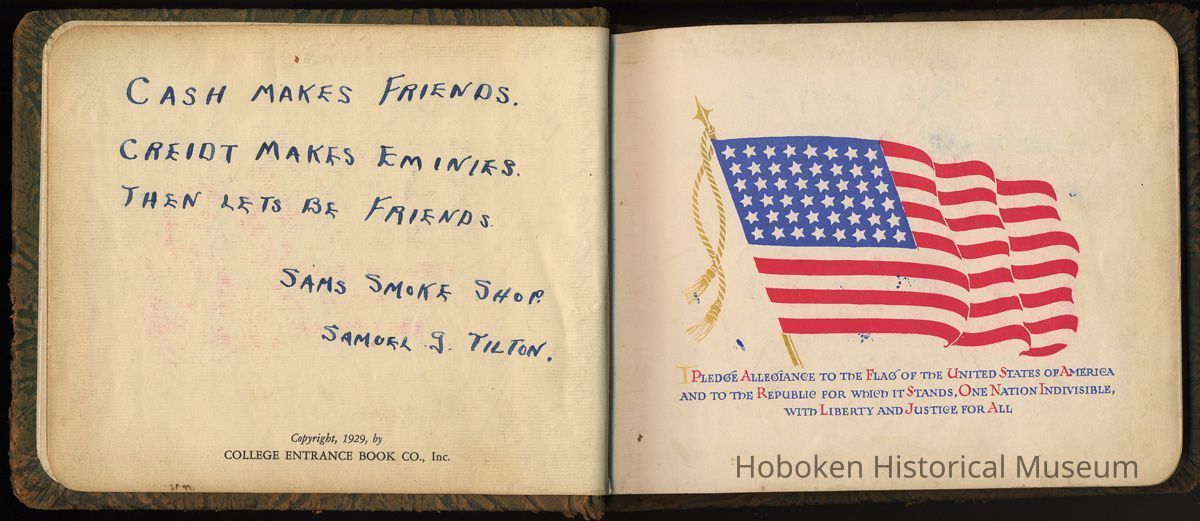 CASH MAKES FRIENDS.
CREIDT MAKES EMINIES.
THEN LETS BE FRIENDS.
SAMS SMOKE SHOP.
SAMUEL G. TILTON.
Copyright, 1929, by
COLLEGE ENTRANCE BOOK CO., Inc.
I PLEDGE ALLEGIANCE TO THE FLAG OF THE UNITED STATES OF AMERICA
AND TO THE REPUBLIC FOR WHICH IT STANDS, ONE NATION INDIVISIBLE,
WITH LIBERTY AND JUSTICE FOR ALL
Hoboken Historical Museum